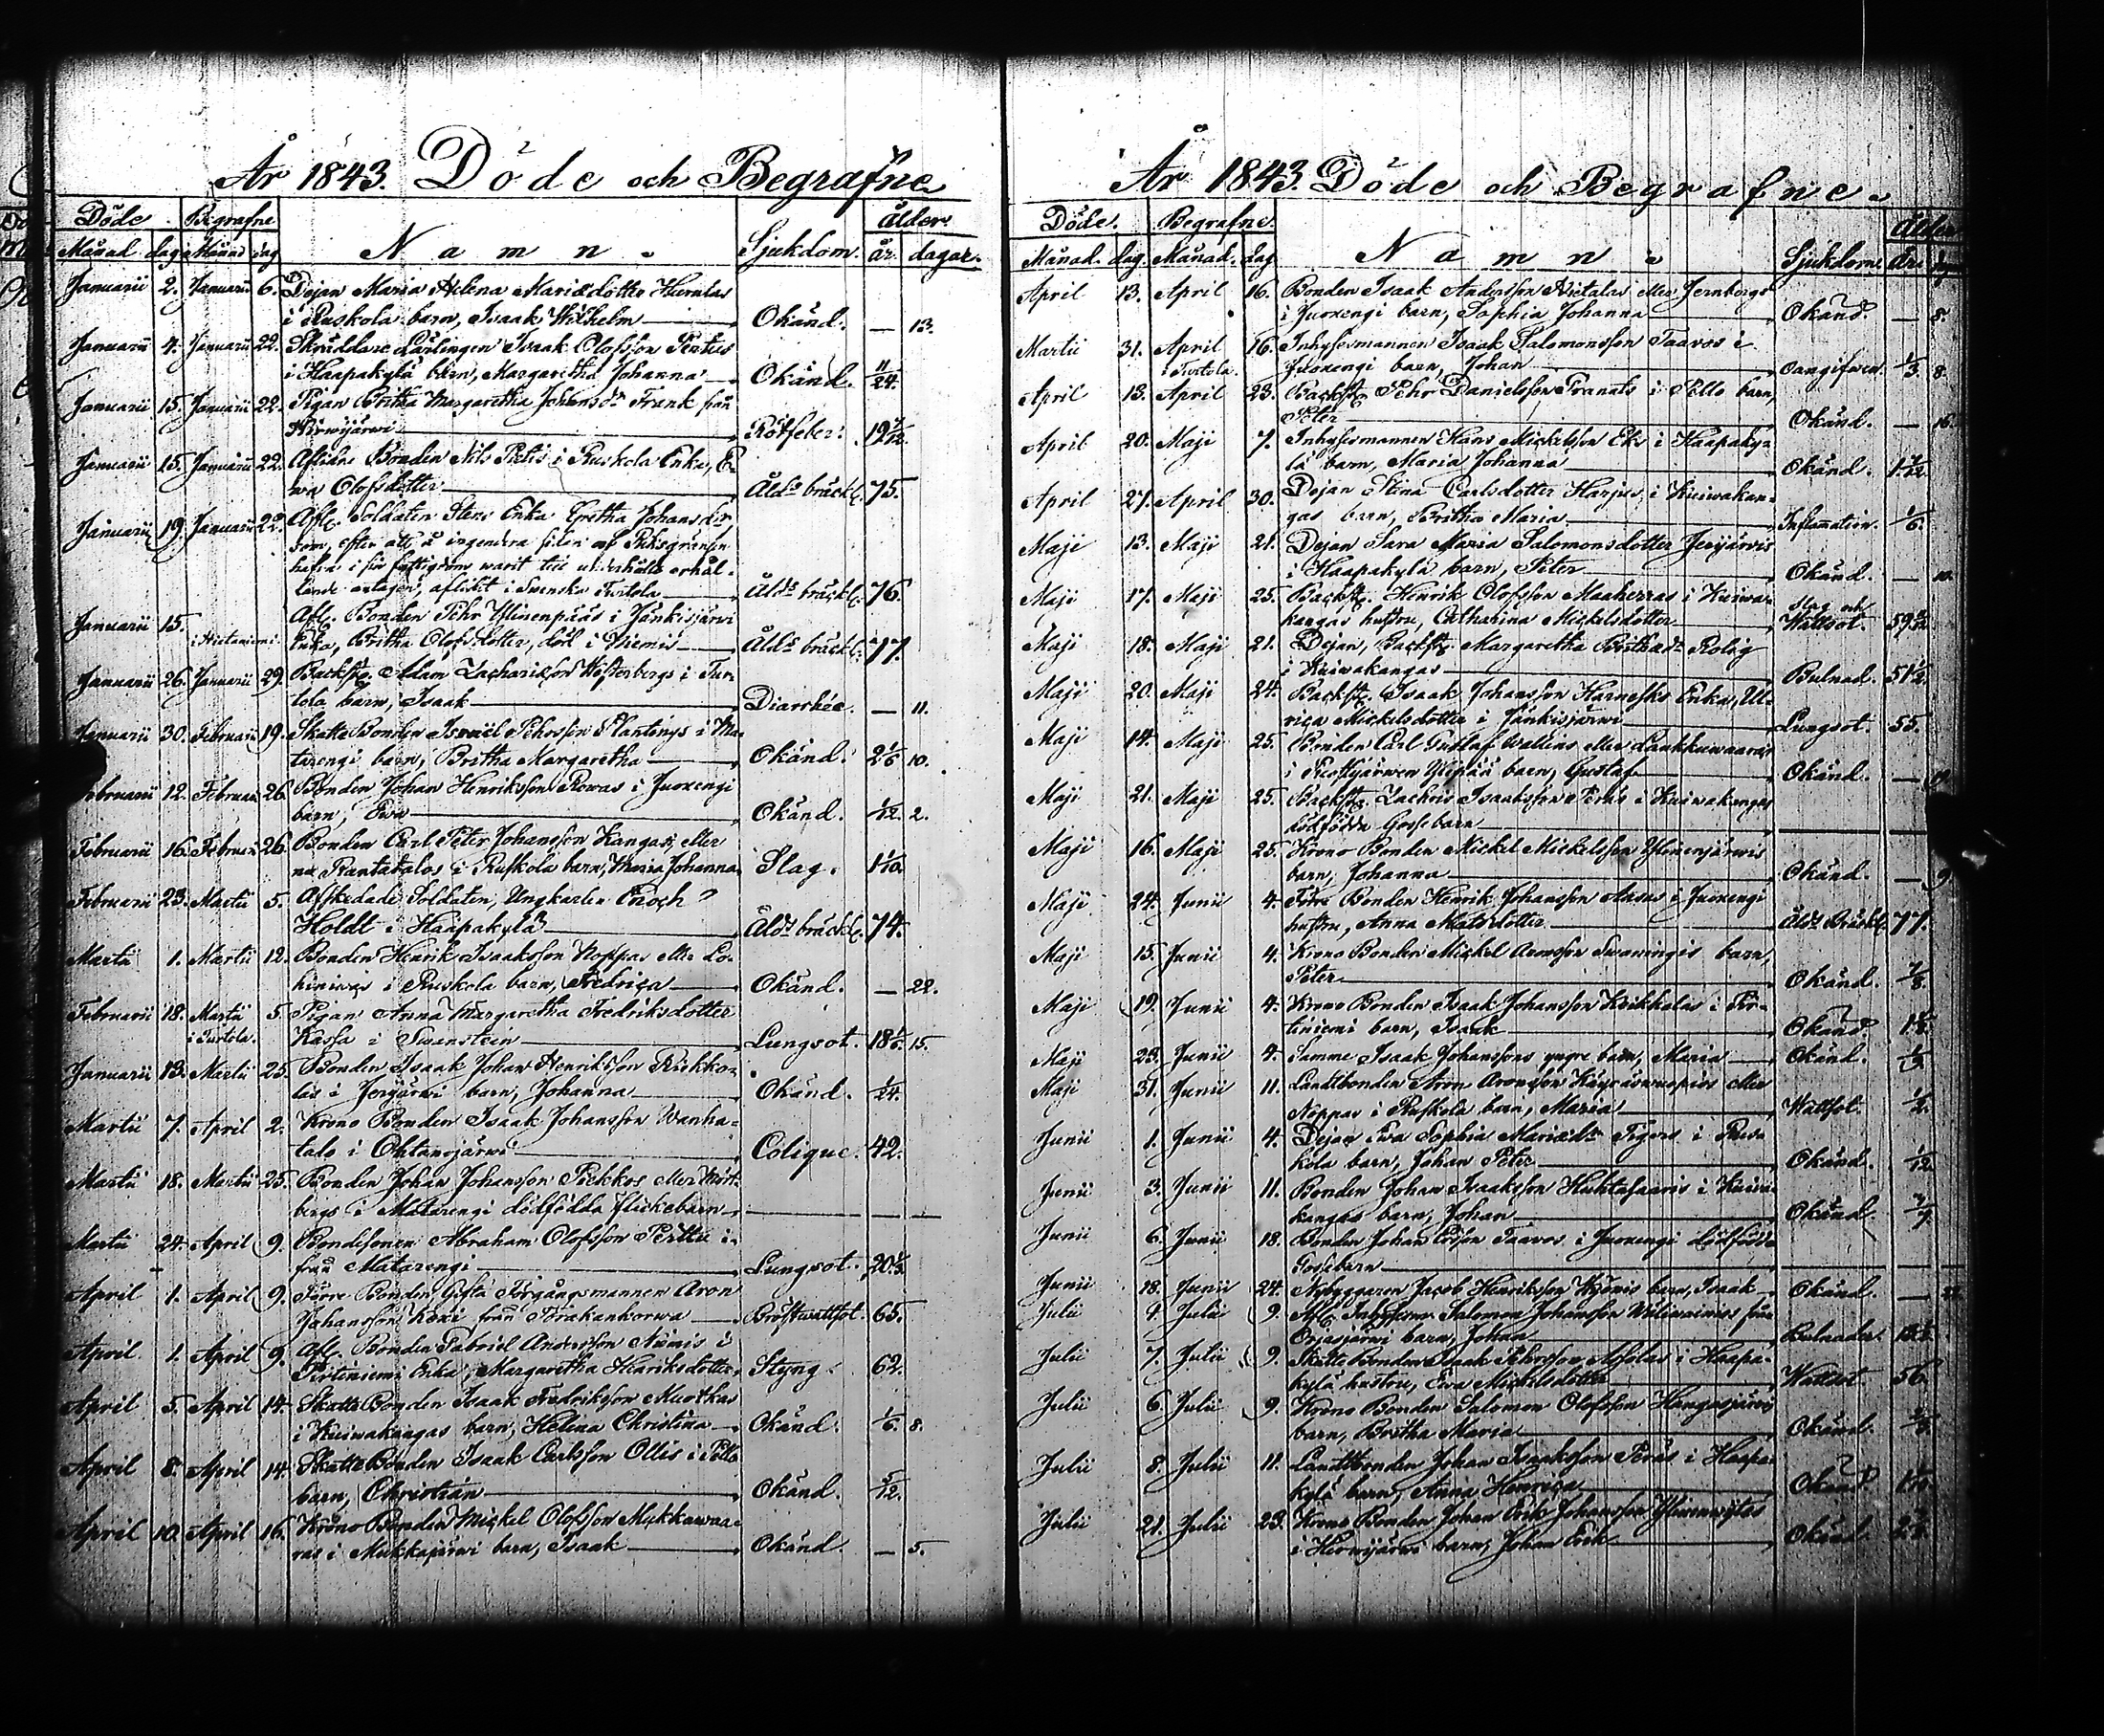 År 1843. Döde och Begrafne
Döde Begrafne Namn. Sjukdom. Ålder
Månad dag Månad dag år. dagar.
Januarii 2. Januarii 6. Dejan Maria Helena Mariædotter
i Ruskola barn, Isaak Wilhelm Okänd. — 13.
Januarii 4. Januarii 22. Skräddare Lärlingen Isaak Olofsson
i Haapakylä barn, Margaretha Johanna Okänd. 11/24.
Januarii 15. Januarii 22. Pigan Britha Margaretha Johansdr Frank från
Hirwijärwi Rötfeber. 19
Januarii 15. Januarii 22. Aflidne Bonden Nils i Ruskola Enka, E-
wa Olofsdotter Åldr bräckl. 75.
Januarii 19. Januarii 22. Afl. Soldaten Stens Enka Gretha Johansdr
som, efter att å ingendera sidan af Riksgränsen
hafva i för fattigdom warit till underhålls erhål-
lande antagen, aflidit i Svenska Turtola Åldr bräckl. 76.
Januarii 15. Afl. Bonden Pehr Ylinenpääs i Jänkisjärwi
i Hietaniemi. Enka, Britha Olofsdotter, död i Niemis Åldr bräckl. 77.
Januarii 26. Januarii 29. Backstg. Adam Zachariæson Westerbergs i Tur-
tola barn, Isaak Diarrhée. — 11.
Januarii 30. Februarii 19. Skatte Bonden Israël Pehrsson Plantings i Ma-
tarengi barn, Britha Margaretha Okänd. 2 1/6 10.
Februarii 12. Februarii 26. Bonden Johan Henriksson Rowas i Juoxengi
barn, Ewa Okänd. 1/12. 2.
Februarii 16. Februarii 26. Bonden Carl Peter Johansson Kangas, eller
Rantatalos i Ruskola barn, Maria Johanna Slag. 1
Februarii 23. Martii 5. Afskedade Soldaten, Ungkarlen Enoch
Holdt i Haapakylä Åldr bräckl. 74.
Martii 1. Martii 12. Bonden Henrik Isaaksson Noppas eller Lo-
hiniwas i Ruskola barn, Fredrica Okänd. — 22.
Februarii 18. Martii 5. Pigan Anna Margaretha Fredriksdotter
i Turtola. Kassa i Swanstein Lungsot. 18 1/6. 15.
Januarii 13. Martii 25. Bonden Isaak Johan Henriksson Riekko-
las i Jerijärwi barn, Johanna Okänd. 1/24.
Martii 7. April 2. Krono Bonden Isaak Johansson Wanha-
talo i Ohtanajärwi Colique. 42.
Martii 18. Martii 25. Bonden Johan Johansson Piekkos eller
bergs i Matarengi dödfödda flickebarn — —
Martii 24. April 9. Bondesonen Abraham Olofsson
från Matarengi Lungsot. 20
April 1. April 9. Förre Bonden Gifta Förgångsmannen Aron
Johansson från Törakankorwa Bröstwattsot. 65.
April 1. April 9. Afl. Bonden Gabriel Andersson Niemis i
Pirtiniemi Enka, Margaretha Henriksdotter Styng. 62.
April 5. April 14. Skatte Bonden Isaak Fredriksson Muotkas
i Kuiwakangas barn, Helena Christina Okänd. 1/6. 8.
April 8. April 14. Skatte Bonden Isaak Carlsson Ollis i Pello
barn, Christian Okänd. 5/12.
April 10. April 16. Krono Bonden Mickel Olofsson Mukkawaa-
ras i Mukkajärwi barn, Isaak Okänd. — 5.
År 1843. Döde och Begrafne.
Döde. Begrafne. Namn. Sjukdom. Ålder
Månad. dag. Månad. dag. År.
April 13. April 16. Bonden Isaak Andersson Hietalas eller Jernbergs
i Juoxengi barn, Sophia Johanna Okänd. — 8.
Martii 31. April 16. Inhysesmannen Isaak Salomonsson Taavos i
i Turtola. Juoxengi barn, Johan Oangifwen. 1/3. 8.
April 13. April 23. Backstg. Pehr Danielsson Granats i Pello barn,
Peter Okänd. — 16.
April 20. Maji 7. Inhysesmannen Hans Mickelsson Eks i Haapaky-
lä barn, Maria Johanna Okänd. 1
April 27. April 30. Dejan Stina Carlsdotter Harjus i Kuiwakan-
gas barn, Britha Maria Inflamation. 1/6.
Maji 13. Maji 21. Dejan Sara Maria Salomonsdotter Jerijärwis
i Haapakylä barn, Peter Okänd. — 10.
Maji 17. Maji 25. Backstg. Henrik Olofsson Maaherras i Kuiwa- Slag och
kangas hustru, Catharina Mickelsdotter Wattsot. 59
Maji 18. Maji 21. Dejan, Backstg. Margaretha Rolig
i Kuiwakangas Bulnad. 51 1/2.
Maji 20. Maji 24. Backstg. Isaak Johansson Harnesks Enka, Ul-
rica Mickelsdotter i Jänkisjärwi Lungsot. 55.
Maji 14. Maji 25. Bonden Carl Gustaf Wallins eller Laukkuwaaras
i barn, Gustaf Okänd. —
Maji 21. Maji 25. Backstg. Zachris Isaaksson Peräs i Kuiwakangas
dödfödda Gossebarn
Maji 16. Maji 25. Krono Bonden Mickel Mickelsson Ylinenjärwis
barn, Johanna Okänd. — 9.
Maji 24. Junii 4. Förre Bonden Henrik Johansson i Juoxengi
hustru, Anna Matsdotter Åldr Bräckl. 77.
Maji 15. Junii 4. Krono Bonden Mickel Aronsson barn,
Peter Okänd. 7/8.
Maji 19. Junii 4. Krono Bonden Isaak Johansson Krikkulas i Pir-
tiniemi barn, Isaak Okänd. 1
Maji 23. Junii 4. Samme Isaak Johanssons yngre barn, Maria Okänd.
Maji 31. Junii 11. Landtbonden Aron Aronsson eller
Noppas i Ruskola barn, Maria Wattsot. 1/2.
Junii 1. Junii 4. Dejan Ewa Sophia Tigers i Rus-
kola barn, Johan Peter Okänd. 1/12.
Junii 3. Junii 11. Bonden Johan Isaaksson Huhtasaaris i Kuiwa-
kangas barn, Johan Okänd.
Junii 6. Junii 18. Bonden Johan Ersson Taavos i Juoxengi dödfödda
Gossebarn
Junii 18. Junii 24. Nybyggaren Jacob Henriksson barn, Isaak Okänd. —
Julii 4. Julii 9. Afl. Salomon Johansson från
Orjasjärwi barn, Johan Bulnader.
Julii 7. Julii 9. Skatte Bonden Isaak Pehrsson i Haapa-
kylä hustru, Ewa Mickelsdotter Wattsot 56.
Julii 6. Julii 9. Krono Bonden Salomon Olofsson Kangasjärwis
barn, Britha Maria Okänd.
Julii 8. Julii 11. Landtbonden Johan Isaaksson Peräs i Haapa-
kylä barn, Anna Henrica Okänd
Julii 21. Julii 23. Krono Bonden Johan Erik Johansson
i Hirwijärwi barn, Johan Erik Okänd.